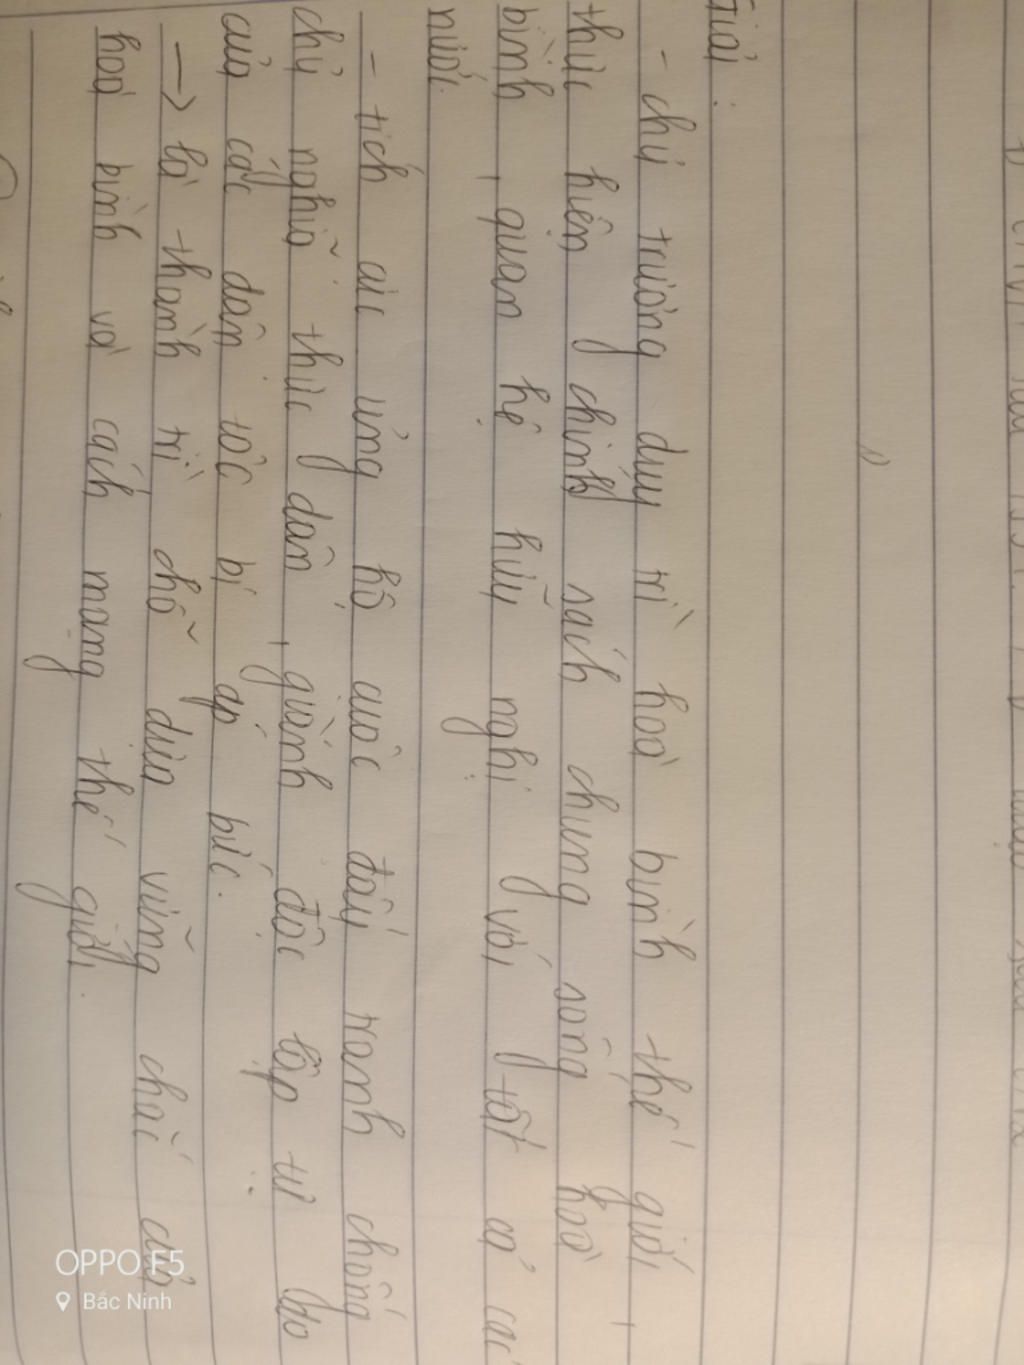 Giải:
- chủ trương duy trì hoà bình thế giới,
thực hiện chính sách chung sống hoà
bình, quan hệ hữu nghị với tất cả các
nước.
- tích cực ủng hộ cuộc đấu tranh chống
chủ nghĩa thực dân, giành độc lập tự do
của các dân tộc bị áp bức.
→ là thành trì chỗ dựa vững chắc của
hoà bình và cách mạng thế giới.
OPPO F5
Bắc Ninh